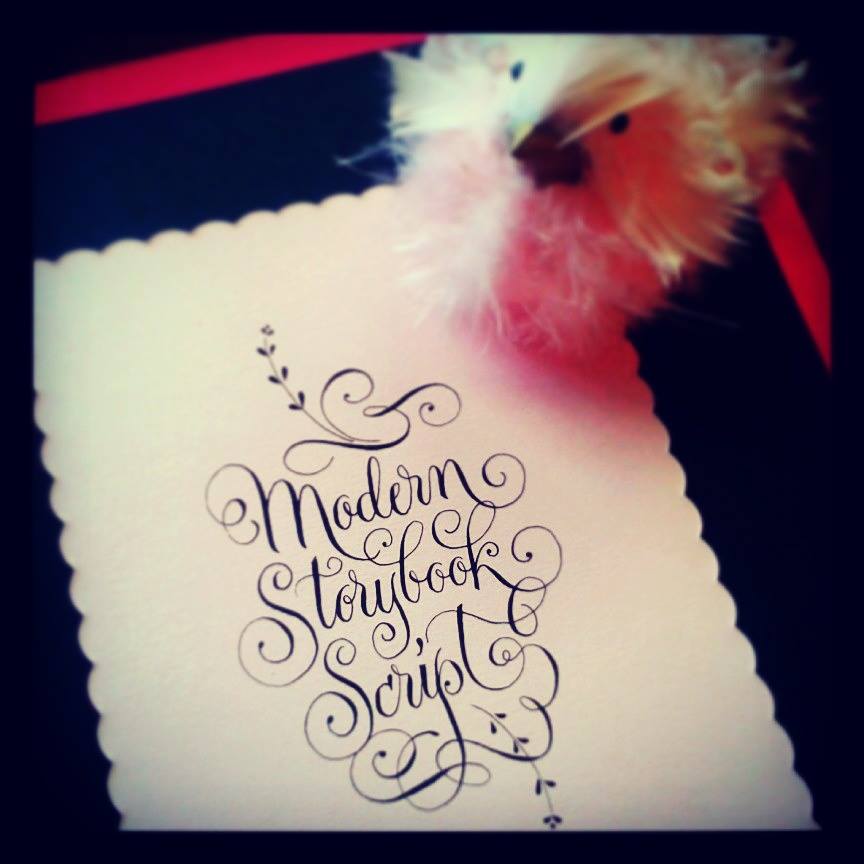 Modern
Storybook
Script